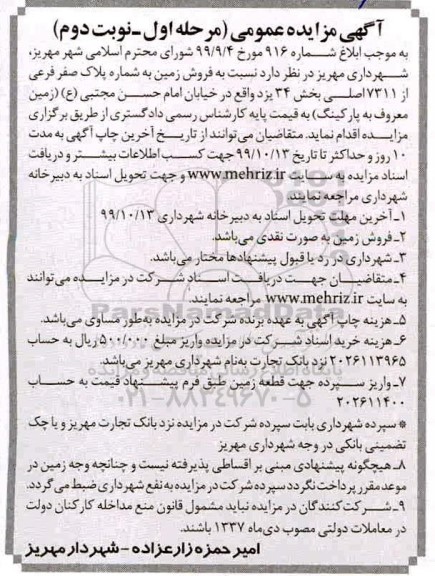 آگهی مزایده عمومی (مرحله اول ـ نوبت دوم)
به موجب ابلاغ شماره ۹۱۶ مورخ ۹۹/۹/۴ شورای محترم اسلامی شهر مهریز،
شهرداری مهریز در نظر دارد نسبت به فروش زمین به شماره پلاک صفر فرعی
از ۷۳۱۱ اصلی بخش ۳۴ یزد واقع در خیابان امام حسن مجتبی (ع) (زمین
معروف به پارکینگ) به قیمت پایه کارشناس رسمی دادگستری از طریق برگزاری
مزایده اقدام نماید. متقاضیان می‌توانند از تاریخ آخرین چاپ آگهی به مدت
۱۰ روز و حداکثر تا تاریخ ۹۹/۱۰/۱۳ جهت کسب اطلاعات بیشتر و دریافت
اسناد مزایده به سایت www.mehriz.ir و جهت تحویل اسناد به دبیرخانه
شهرداری مراجعه نمایند.
۱ـ آخرین مهلت تحویل اسناد به دبیرخانه شهرداری ۹۹/۱۰/۱۳
۲ـ فروش زمین به صورت نقدی می‌باشد.
۳ـ شهرداری در رد یا قبول پیشنهادها مختار می‌باشد.
۴ـ متقاضیان جهت دریافت اسناد شرکت در مزایده می‌توانند
به سایت www.mehriz.ir مراجعه نمایند.
۵ـ هزینه چاپ آگهی به عهده برنده شرکت در مزایده به‌طور مساوی می‌باشد.
۶ـ هزینه خرید اسناد شرکت در مزایده واریز مبلغ ۵۰۰/۰۰۰ ریال به حساب
۲۰۲۶۱۱۳۹۶۵ نزد بانک تجارت به‌نام شهرداری مهریز می‌باشد.
۷ـ واریز سپرده جهت قطعه زمین طبق فرم پیشنهاد قیمت به حساب
۲۰۲۶۱۱۴۰۰
* سپرده شهرداری بابت سپرده شرکت در مزایده نزد بانک تجارت مهریز و یا چک
تضمینی بانکی در وجه شهرداری مهریز
۸ـ هیچگونه پیشنهادی مبنی بر اقساطی پذیرفته نیست و چنانچه وجه زمین در
موعد مقرر پرداخت نگردد سپرده شرکت در مزایده به نفع شهرداری ضبط می‌گردد.
۹ـ شرکت‌کنندگان در مزایده نباید مشمول قانون منع مداخله کارکنان دولت
در معاملات دولتی مصوب دی‌ماه ۱۳۳۷ باشند.
امیر حمزه زارعزاده - شهردار مهریز
ParsNamadData
۰۲۱-۸۸۳۴۹۶۷۰-۵